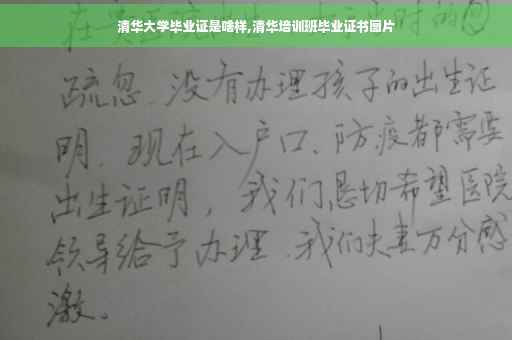 清华大学毕业证是啥样,清华培训班毕业证书图片
疏忽.没有办理孩子的出生证
明.现在入户口、防疫都需要
出生证明，我们恳切希望医院
领导给予办理.我们夫妻万分感
激。